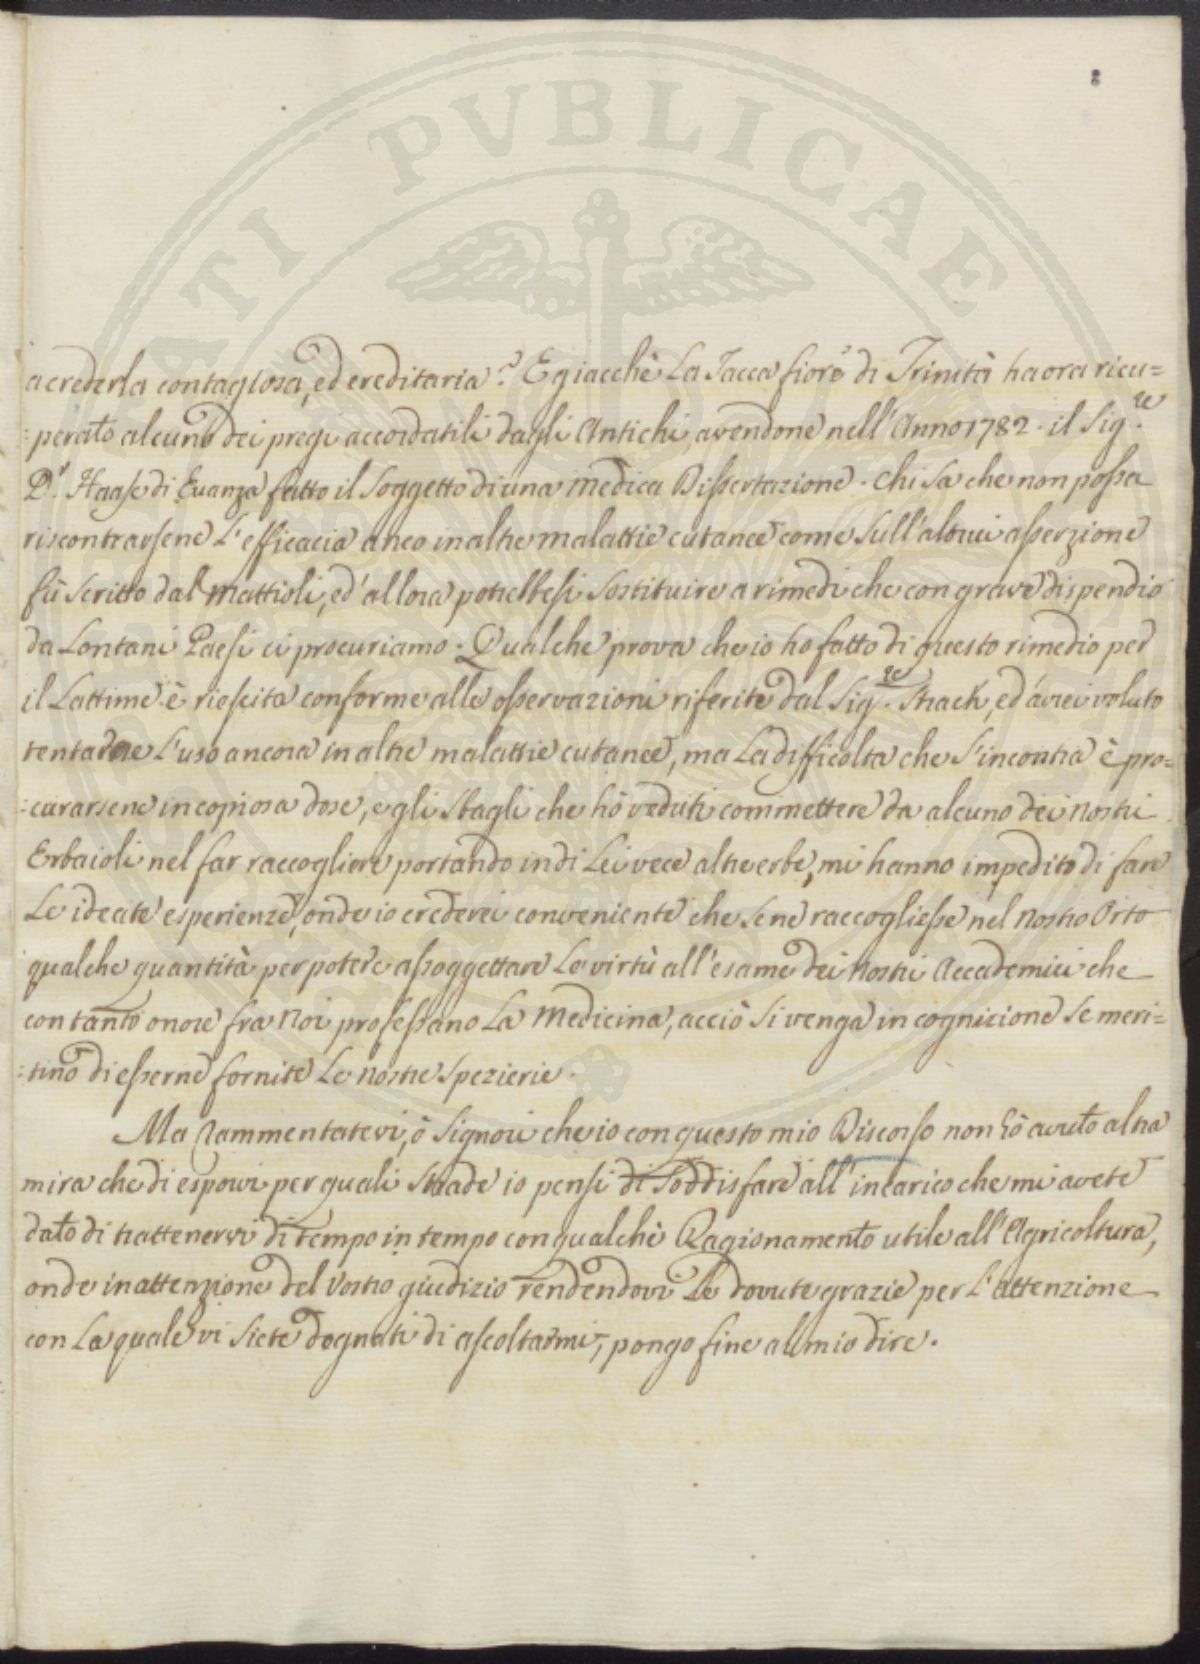 8
PVBLICAE
a crederla contagiosa, ed ereditaria? E giacchè La Jacca fiore di Trinità ha ora ricu=
=perato alcuno dei pregi accordatili dagli Antichi, avendone nell'Anno 1782. il Sig.re
D.r Haase di fatto il Soggetto di una medica Dissertazione. Chi sa che non possa
riscontrarsene L'efficacia anco in altre malattie cutanee come sull'altrui asserzione
fù scritto dal Mattioli, ed'allora potrebbesi sostituire a rimedi che con grave dispendio
da Lontani Paesi ci procuriamo. Qualche prova che io ho fatto di questo rimedio per
il Lattime è riescita conforme alle osservazioni riferite dal Sig.re Strack, ed'avrei voluto
tentarne L'uso ancora in altre malattie cutanee, ma La difficoltà che s'incontra è pro=
=curarsene in copiosa dose, e gli sbagli che hò veduti commettere da alcuno dei nostri
Erbaioli nel far raccogliere portando in di Lei vece altre erbe, mi hanno impedito di fare
Le ideate esperienze, onde io crederei conveniente che se ne raccogliesse nel nostro Orto
qualche quantità per potere assoggettare Le virtù all'esame dei nostri Accademici che
con tanto onore fra Noi professano La Medicina, acciò si venga in cognizione se meri=
=tino di esserne fornite Le nostre Spezierie.
Ma Rammentatevi, ò Signori che io con questo mio Discorso non hò avuto altra
mira che di esporvi per quali Strade io pensi di Soddisfare all'incarico che mi avete
dato di trattenervi di tempo in tempo con qualche Ragionamento utile all'Agricoltura,
onde in attenzione del Vostro giudizio rendendovi Le dovute grazie per L'attenzione
con La quale vi siete degnati di ascoltarmi, pongo fine al mio dire.